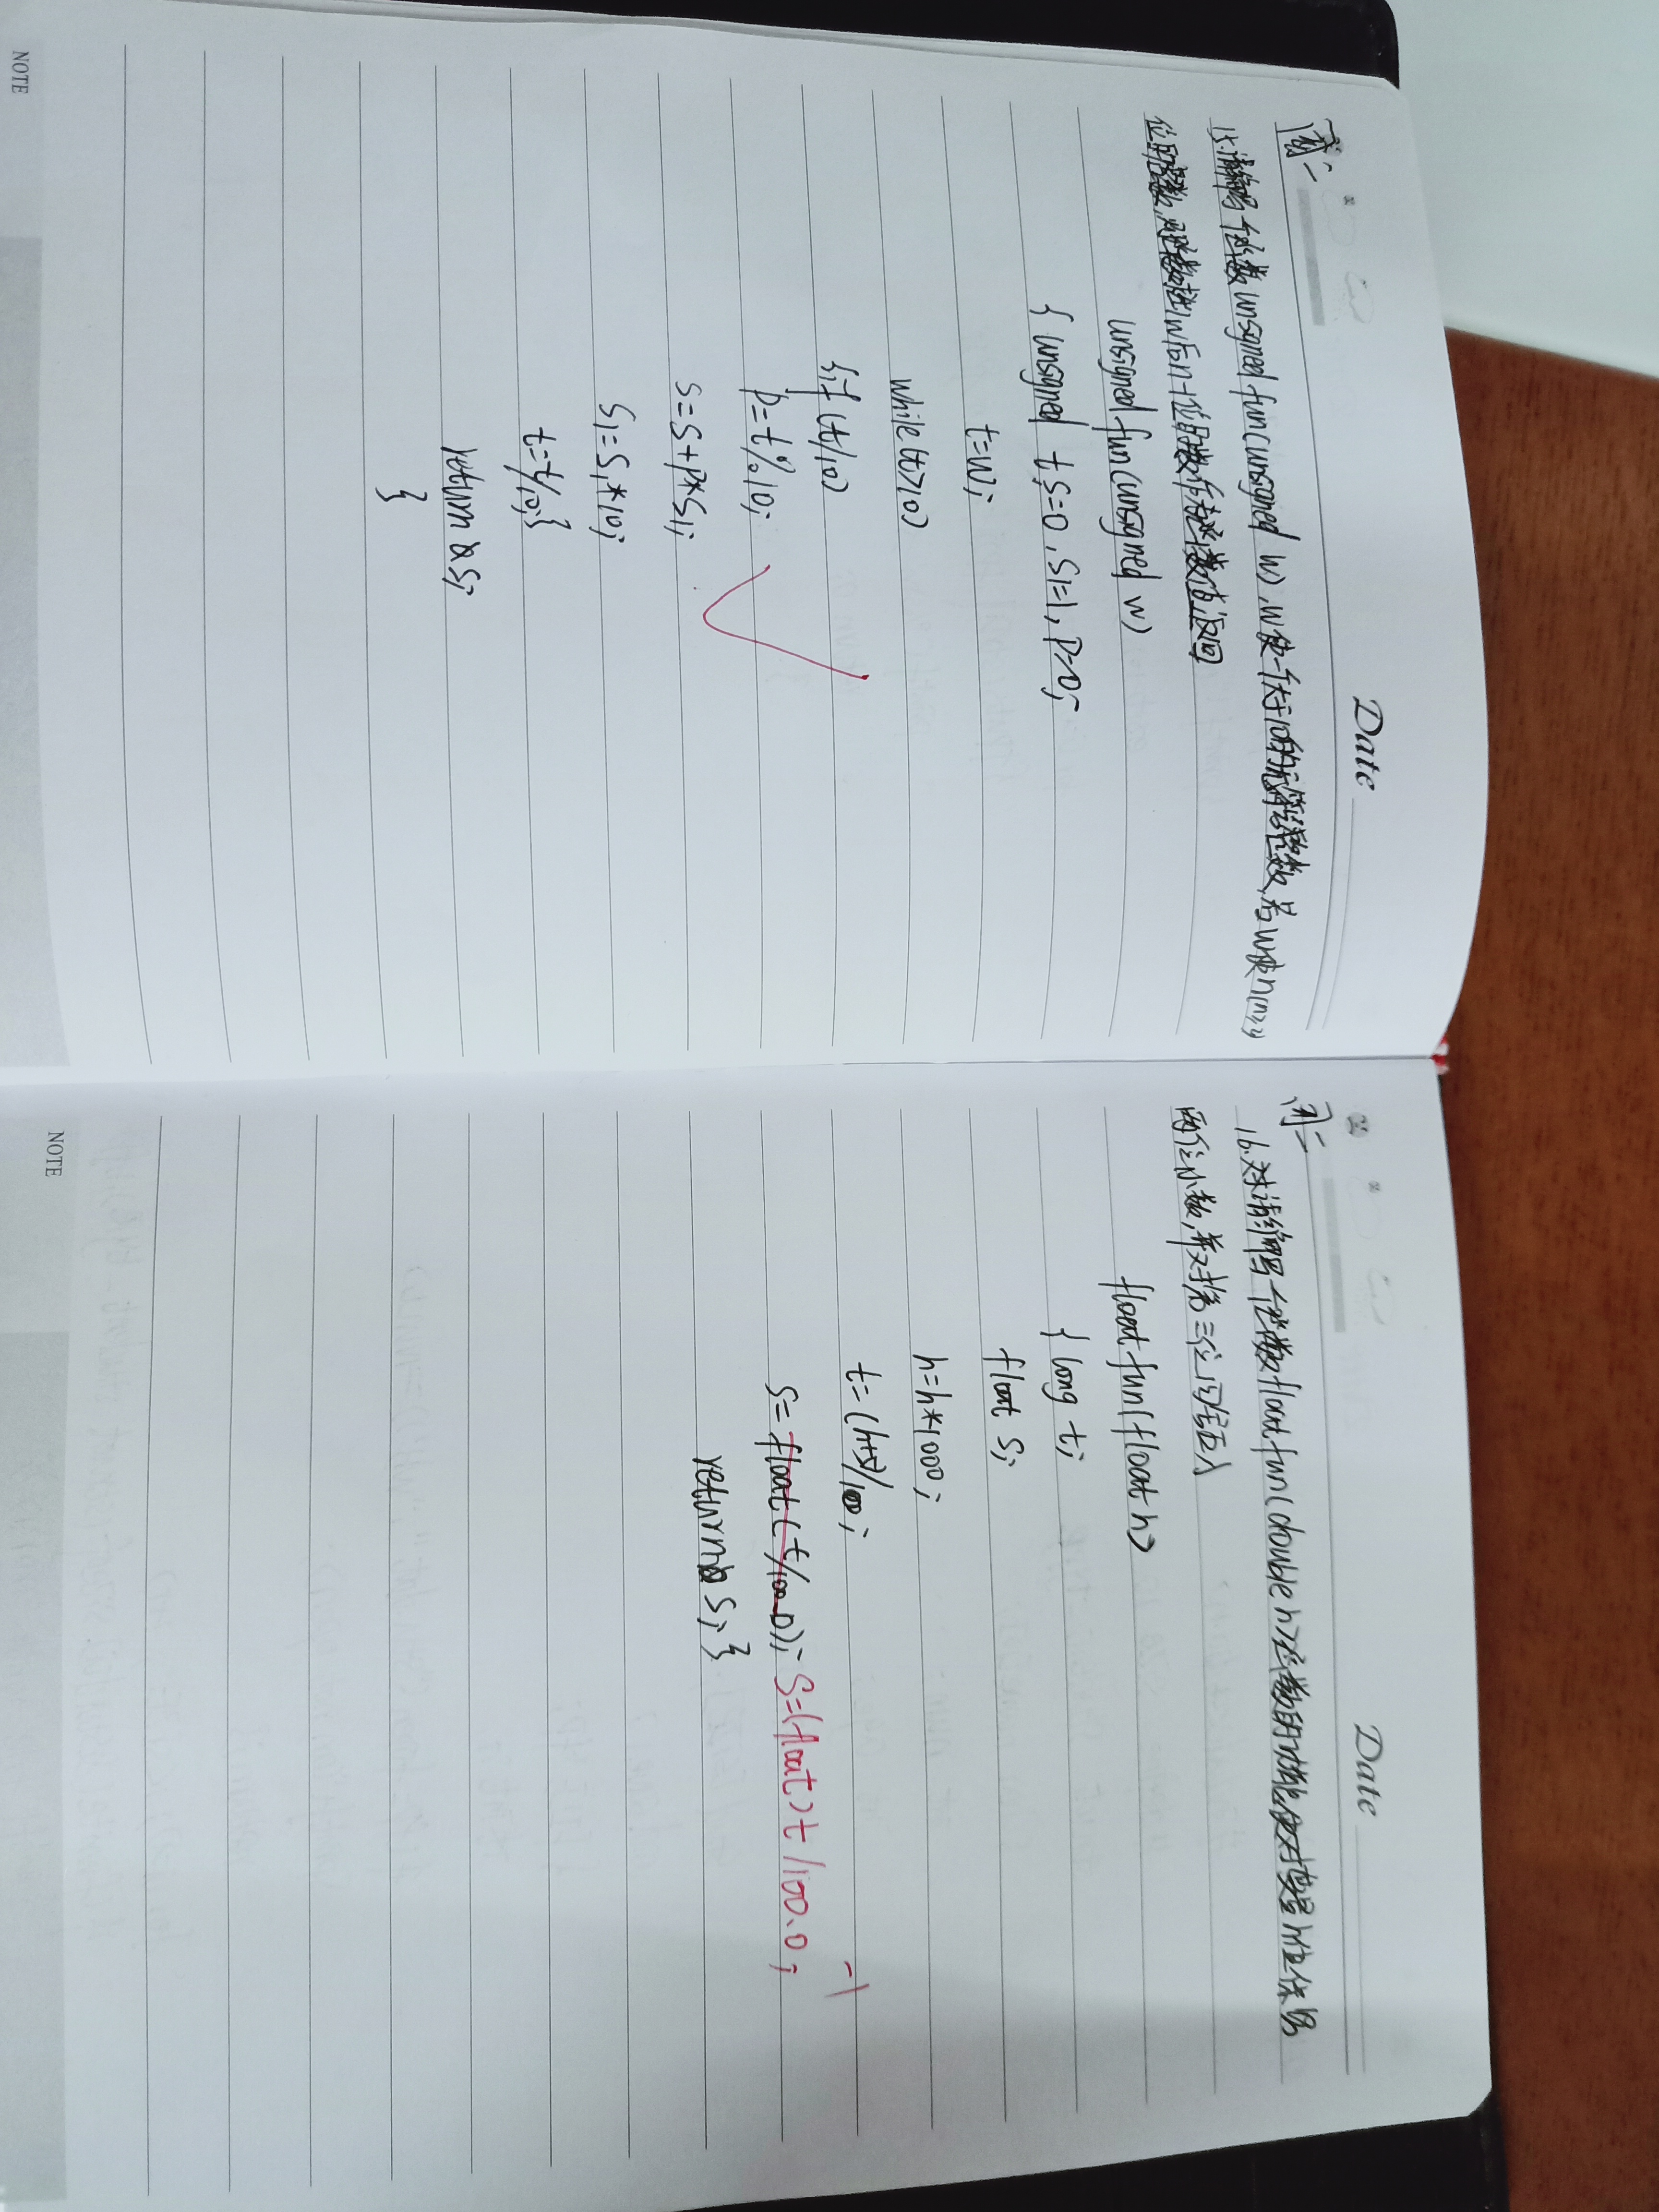 Date
周一
15.请编写一个函数unsigned fun(unsigned w),w是一个大于10的无符号整数,若w是n(n≥2)
位的整数,函数求出w后n-1位的数作为函数值返回
unsigned fun(unsigned w)
{ unsigned t,s=0,s1=1,p=0;
t=w;
while(t>10)
{if(t/10)
p=t%10;
s=s+p*s1;
s1=s1*10;
t=t/10;}
return s;
}
NOTE
Date
周二
16.请编写一个函数float fun(double h)函数的功能是对变量h中保留
两位小数,并对第三位四舍五入
float fun(float h)
{ long t;
float s;
h=h*1000;
t=(h+5)/100;
s=float(t/100.0); s=(float)t/100.0; -1
return s;}
NOTE